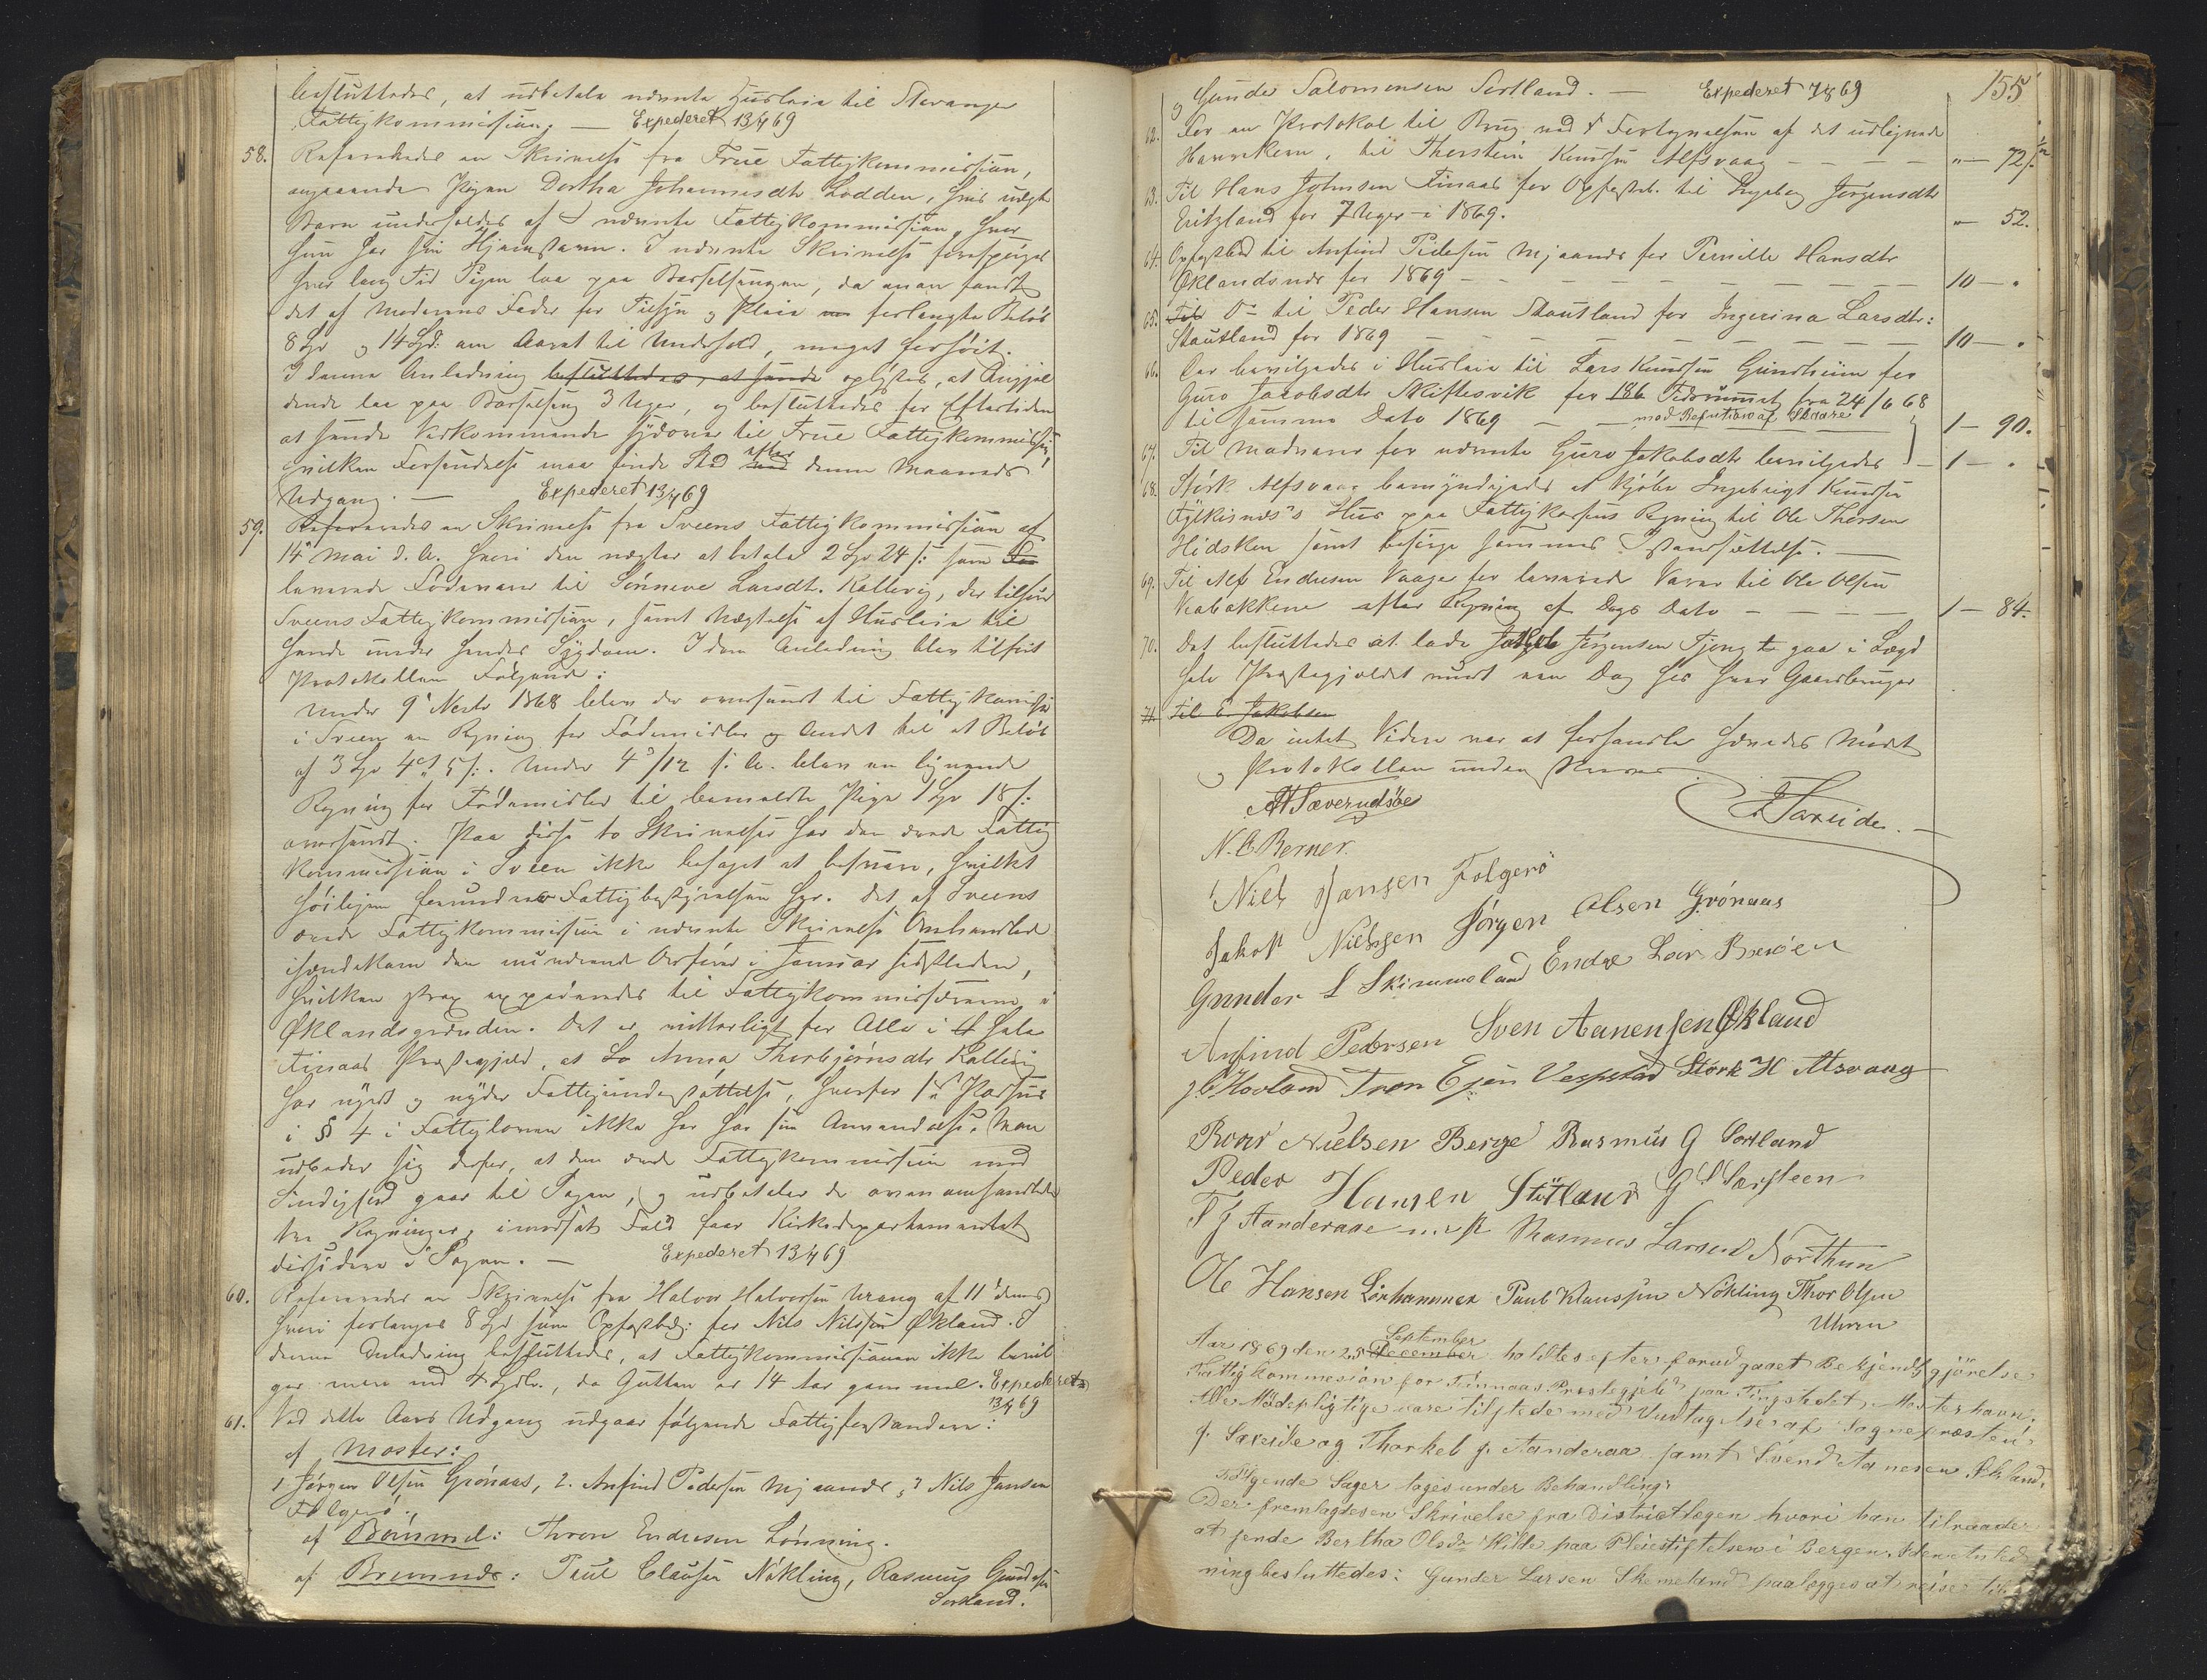 besluttedes, at udbetale nævnte Husleie til Stavanger
Fattigkommission. — Expederet 13/7 69
58. Refereredes en Skrivelse fra Frue Fattigkommission,
angaaende Pigen Dortha Johannesdtr Lodden, hvis uægte
Barn underholdes af nævnte Fattigkommission, hvor
hun har sin Hjemstavn. I nævnte Skrivelse forespørges
hvor lang Tid Pigen laa paa Barselsengen, da man fandt
det af Moderens Fader for Tilsyn og Pleie forlangte Beløb
8 Spd og 14 Spd. om Aaret til Underhold, meget forhøit.
I denne Anledning besluttedes, at sende oplystes, at Angjæl
dende laa paa Barselseng 3 Uger, og besluttedes for Eftertiden
at sende Vedkommende sydover til Frue Fattigkommission,
hvilken Forsendelse maa finde Sted efter denne Maaneds
Udgang. — Expederet 13/7 69
59. Refereredes en Skrivelse fra Sveens Fattigkommission af
14de Mai d. A. hvori den nægter at betale 2 Spd 24 s: for
leverede Fødevarer til Sønneve Larsdtr. Kallevig, der tilhører
Sveens Fattigkommission, samt Nægtelse af Husleie til
hende under hendes Sygdom. I den Anledning blev tilført
Protokollen Følgende:
Under 9de Novbr 1868 blev der oversendt til Fattigkommission
i Sveen en Regning for Fødemidler og Andet til et Beløb
af 3 Spd 4 5 s:. Under 4de/12 s. A. blev en lignende
Regning for Fødemidler til bemeldte Pige 1 Spd 18 s:
oversendt. Paa disse to Skrivelser har den ærede Fattig
kommission i Sveen ikke behaget at besvare, hvilket
høiligen forundrer Fattigbestyrelsen her. Det af Sveens
ærede Fattigkommission i nævnte Skrivelse Omhandlede
ihændekom den nuværende Ordfører i Januar sidstleden,
hvilken strax expederedes til Fattigkommissærerne i
Øklandsgrænden. Det er vitterligt for Alle i hele
Finaas Præstegjeld, at Lo Anna Thorbjørnsdtr Kallevig
har nydt og nyder Fattigunderstøttelse, hvorfor 1ste Passus
i § 4 i Fattigloven ikke her har sin Anvendelse. Man
udbeder sig derfor, at den ærede Fattigkommission med
Sindighed gaar til Sagen, og udbetaler de ovenomhandlede
tre Regninger, i modsat Fald faar Kirkedepartementet
decidere i Sagen. — Expederet 13/7 69
60. Refereredes en Skrivelse fra Halvor Halvorsen Vrang af 11te dennes
hvori forlanges 8 Spd som Opfostbdg: for Nils Nilssen Økland. I
denne Anledning besluttedes, at Fattigkommissionen ikke bevil
ger mere end 4 Spdlr., da Gutten er 14 Aar gammel. Expederet
13/7 69
61. Ved dette Aars Udgang udgaar følgende Fattigforstandere:
af Moster:
1 Jørgen Olsen Grønaas, 2. Anfind Pedersen Mjaanæs, 3 Nils Jansen
Folgerø.
af Bømmel: Thron Endresen Lønning.
af Bremnæs: Poul Clausen Nøkling, Rasmus Gundersen
Sorland.
155
og Gunder Salomonsen Sortland. — Expederet 7/8 69
62. For en Protokol til Brug ved Fortegnelsen af det udlignede
Havrekorn, til Thorstein Knudsen Alfsvaag — — — — " — 72 s. 1/2
63. Til Hans Johnsen Finaas for Opfostb. til Ingeborg Jørgensdtr
Eritzland for 7 Uger i 1869. " — 52.
64. Opfostbd til Anfind Pedersen Mjaanæs for Pernille Hansdtr
Øklandsnæs for 1869 — — — — — — 10 — "
65. Til Do til Peder Hansen Stautland for Ingerina Larsdtr:
Stautland for 1869 — — — — — — 10 — "
66. Der bevilgedes i Husleie til Lars Knudsen Gundheim for
Guro Jacobsdtr Skiftesvik for 186 Tidsrummet fra 24/6 68
til samme Dato 1869 — — med Refution af Skaare 1 — 90.
67. Til Madvarer for nævnte Guro Jakobsdtr bevilgedes — 1 — "
68. Størk Alfsvaag bemyndigedes at kjøbe Ingebrigt Knudsen
Fylkisnæs's Hus paa Fattigkassens Regning til Ole Thorsen
Hidsken samt besørge sammes Istandsættelse. —
69. Til Alf Endresen Vaage for leverede Varer til Ole Olsen
Veabakken efter Regning af Dags Dato — — — 1 — 84.
70. Det besluttedes at lade Jakob Jørgensen Tjong gaa i Lægd
hele Præstegjeldet rundt een Dag hos hver Gaardbruger
71. Til E. Jakobsen
Da intet Videre var at forhandle hævedes Mødet
og Protokollen underskreves.
J. Sareide.
A H Sæverudsöe
N. C. Berner.
Niels Jansen Folgerö
Jakob Nielssen Jörgen Olsen Grónaas
Gunder L Skimmeland Endre Lars Brøen
Anfind Pedersen Sven Aanensen Økland
J. C. Hovland Tron Ejen Vespestad Størk H Alsvaag
Roar Nielsen Berge Rasmus G Sortland
Peder Hansen Stütland G S Sarsteen
T J Aanderaae m. f. P. Rasmus Larsen Northun
Ole Hansen Lönhammer Paul Klaussen Nökling Thor Olsen
Uhren
Aar 1869 den 25 September December holdtes efter forudgaaet Bekjendtgjörelse
Fattigkommesion for Finnaas Prestegjeld paa Tingstedet Mosterhavn.
Alle Mödepligtige vare tilstede med Undtagelse af Sognepræsten
J. Sareide og Thorkel J. Aanderaa samt Svend Aanesen Økland.
Fölgende Sager toges under Behandling:
Der fremlagdes en Skrivelse fra Districtlægen hvori han tilraader
at sende Bertha Olsdr Kilde paa Pleiestiftelsen i Bergen. I den Anled
ning besluttedes: Gunder Larsen Skemeland paalægges at reise til